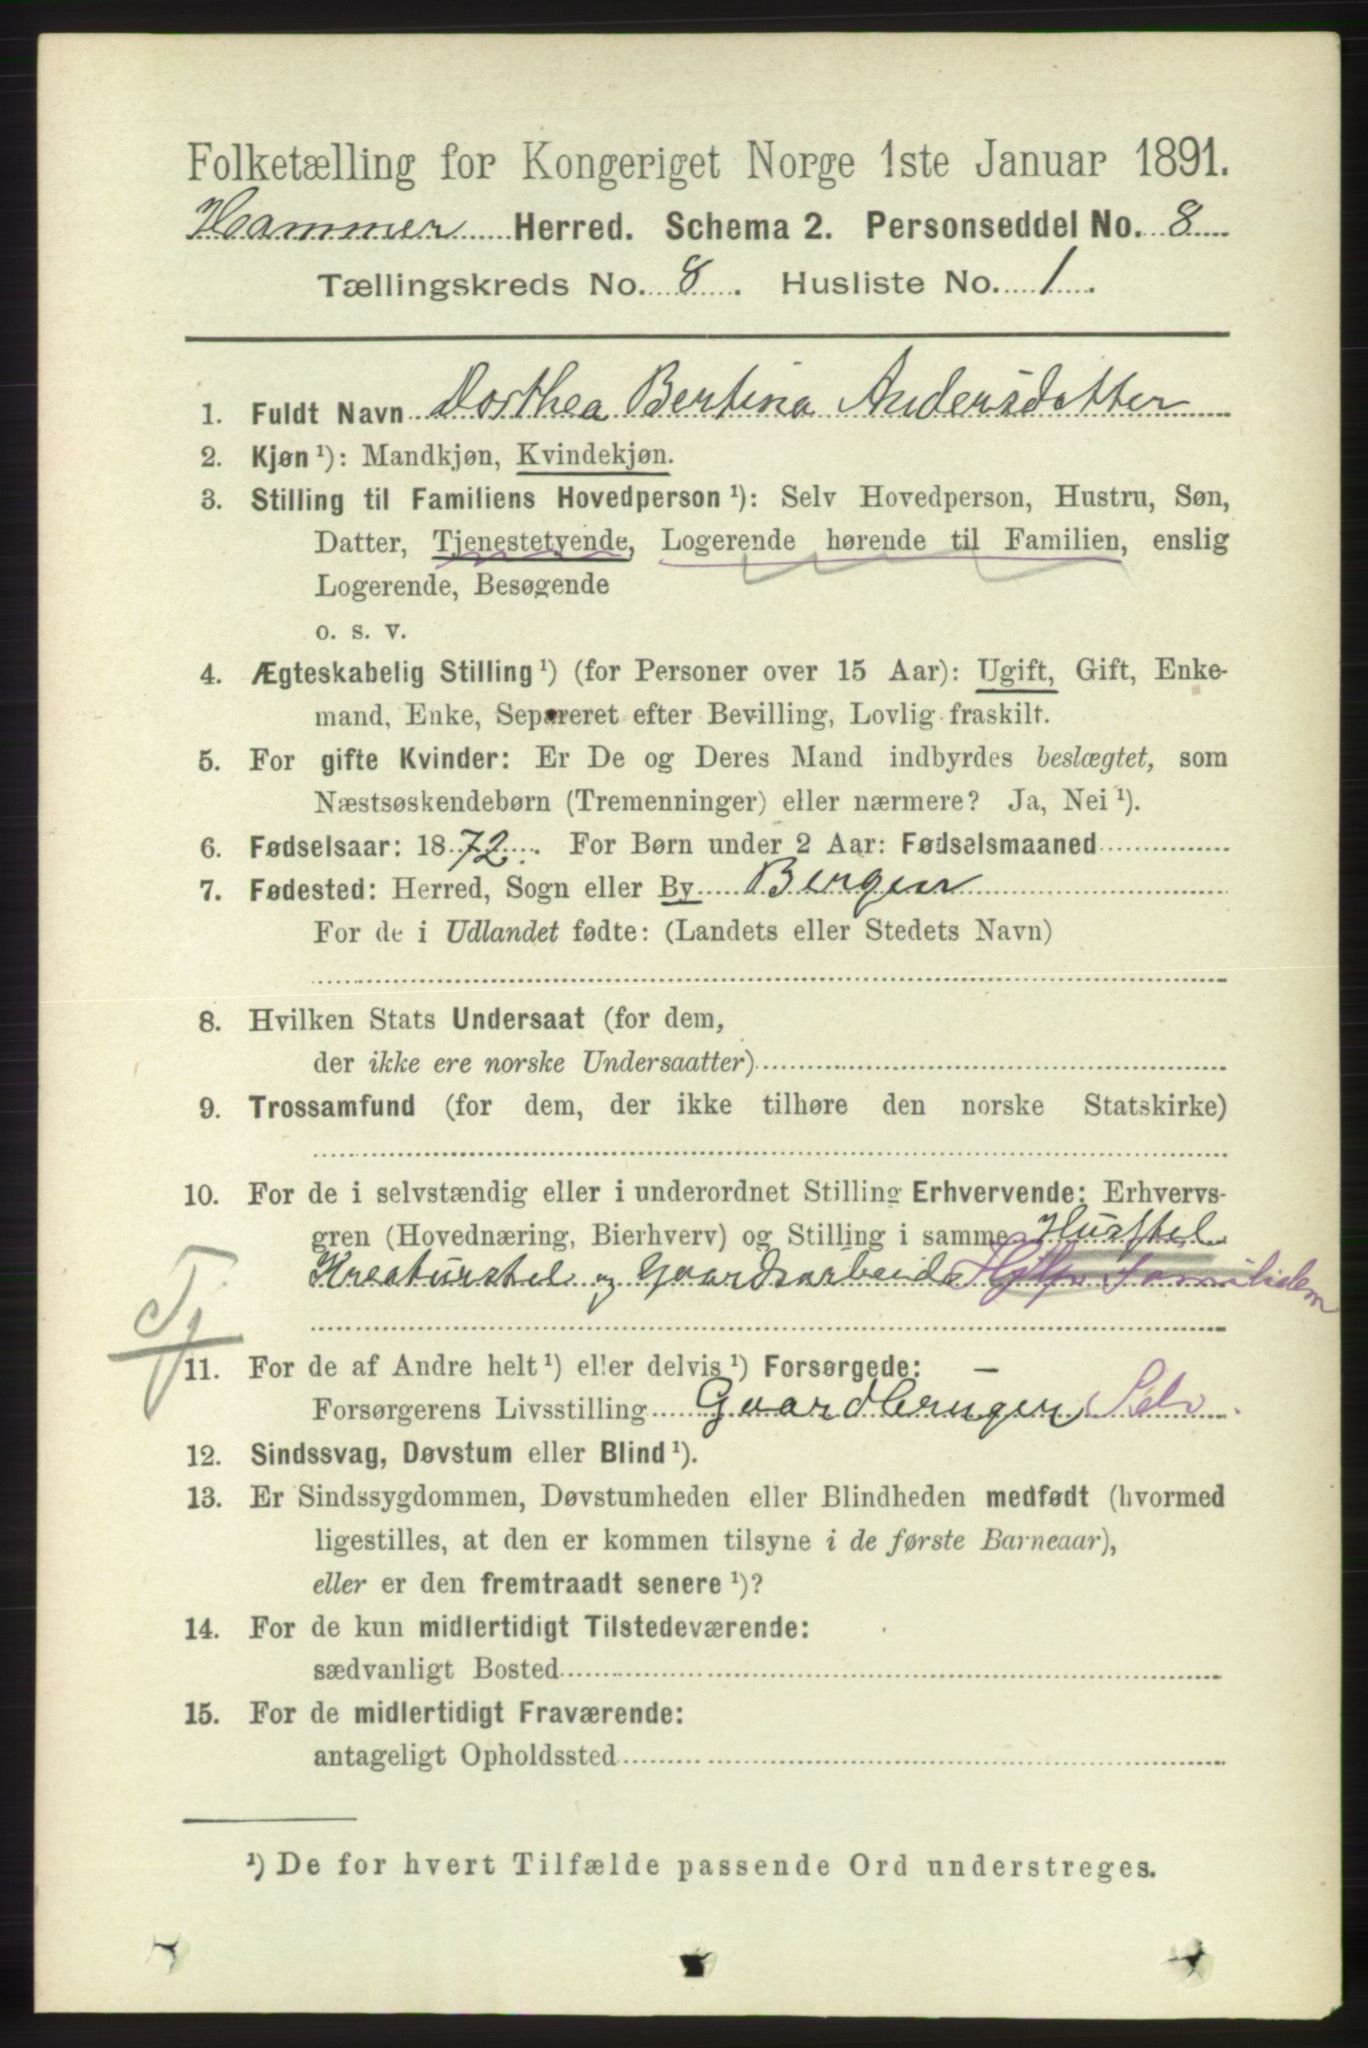 Folketælling for Kongeriget Norge 1ste Januar 1891.
Hammer Herred. Schema 2. Personseddel No. 8
Tællingskreds No. 8. Husliste No. 1.
1. Fuldt Navn Dorthea Bertina Andersdatter
2. Kjøn ¹): Mandkjøn, Kvindekjøn.
3. Stilling til Familiens Hovedperson ¹): Selv Hovedperson, Hustru, Søn,
Datter, Tjenestetyende, Logerende hørende til Familien, enslig
Logerende, Besøgende
o. s. v.
4. Ægteskabelig Stilling ¹) (for Personer over 15 Aar): Ugift, Gift, Enke-
mand, Enke, Separeret efter Bevilling, Lovlig fraskilt.
5. For gifte Kvinder: Er De og Deres Mand indbyrdes beslægtet, som
Næstsøskendebørn (Tremenninger) eller nærmere? Ja, Nei ¹).
6. Fødselsaar: 1872. For Børn under 2 Aar: Fødselsmaaned
7. Fødested: Herred, Sogn eller By Bergen
For de i Udlandet fødte: (Landets eller Stedets Navn)
8. Hvilken Stats Undersaat (for dem,
der ikke ere norske Undersaatter)
9. Trossamfund (for dem, der ikke tilhøre den norske Statskirke)
10. For de i selvstændig eller i underordnet Stilling Erhvervende: Erhvervs-
gren (Hovednæring, Bierhverv) og Stilling i samme Husstel
Kreaturstel og Gaardsarbeide Hjelper Familidem
Tj
11. For de af Andre helt ¹) eller delvis ¹) Forsørgede: –
Forsørgerens Livsstilling Gaardbruger Selv
12. Sindssvag, Døvstum eller Blind ¹).
13. Er Sindssygdommen, Døvstumheden eller Blindheden medfødt (hvormed
ligestilles, at den er kommen tilsyne i de første Barneaar),
eller er den fremtraadt senere ¹)?
14. For de kun midlertidigt Tilstedeværende:
sædvanligt Bosted
15. For de midlertidigt Fraværende:
antageligt Opholdssted
¹) De for hvert Tilfælde passende Ord understreges.